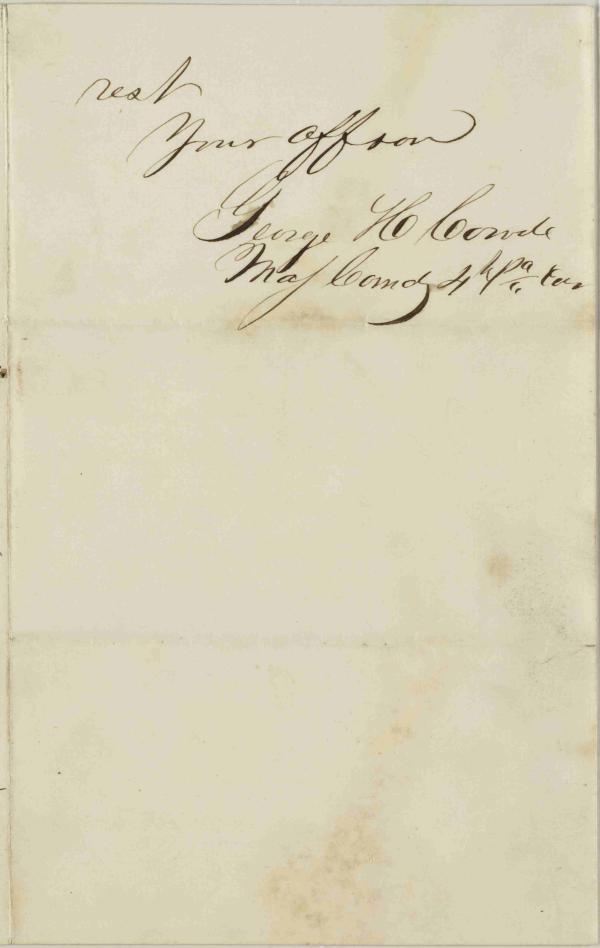 rest
Your aff son
George H Covode
Maj Comdg 4th Pa Cav